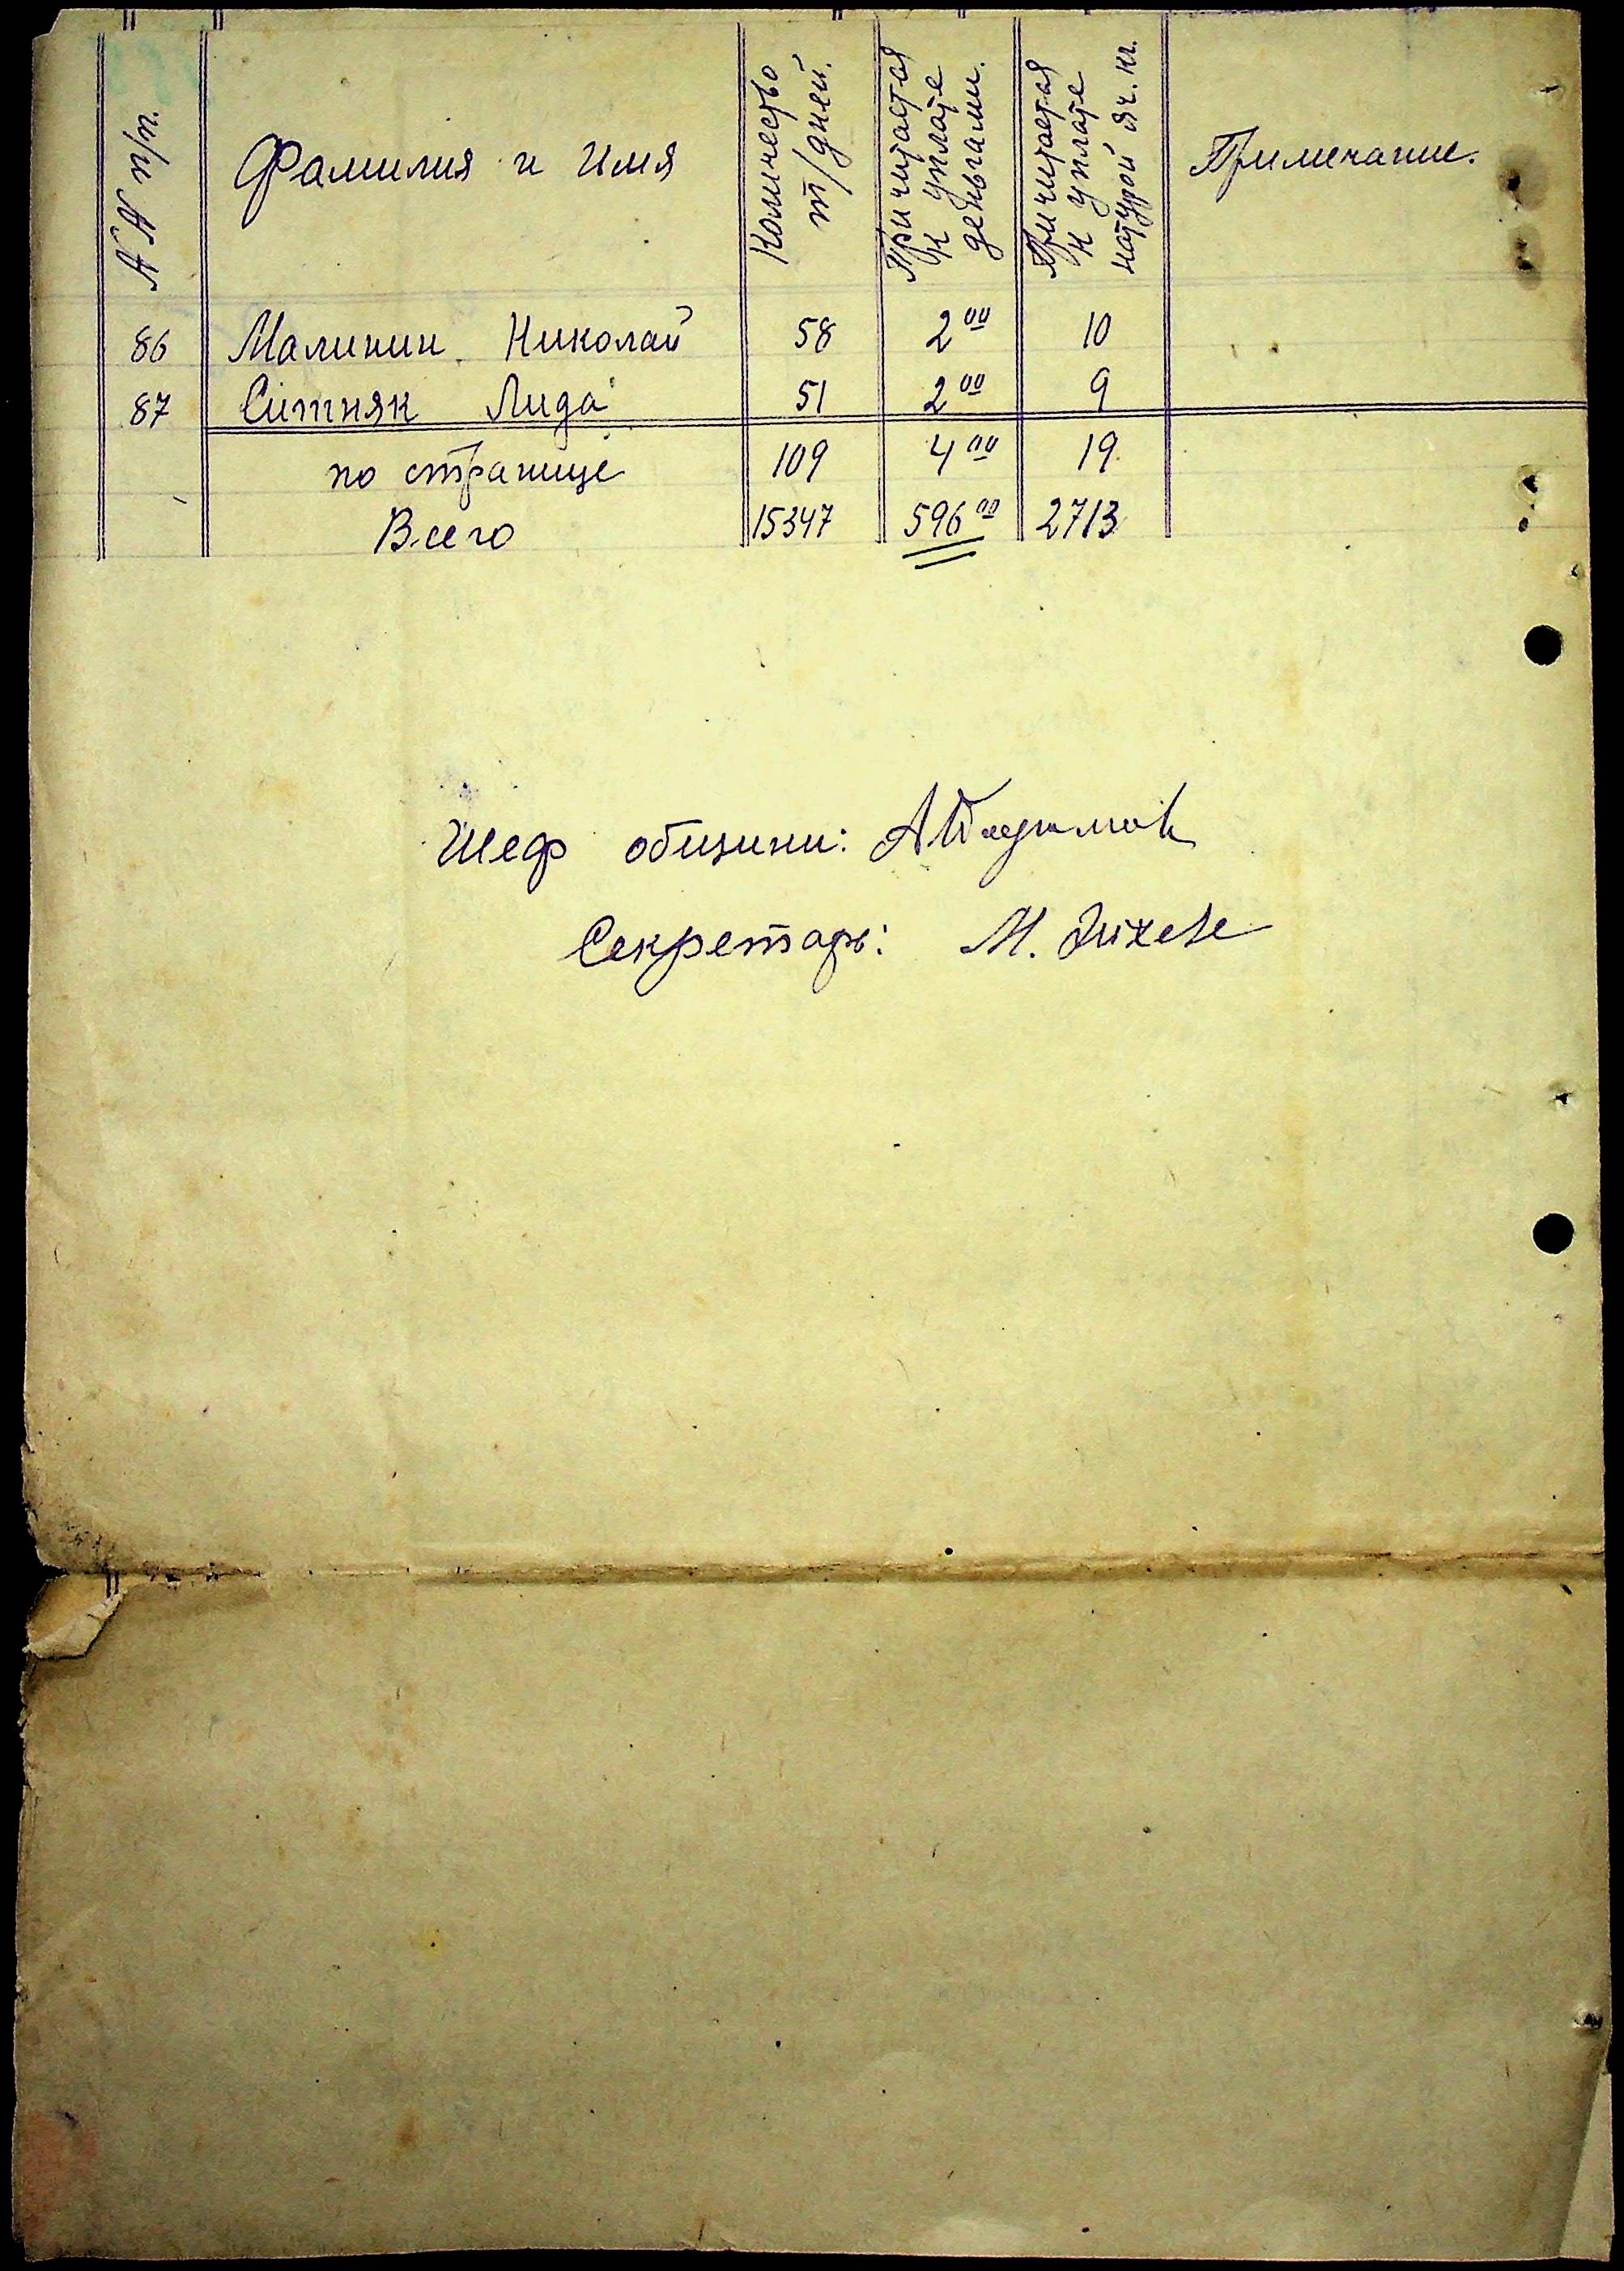 №№ п/п. Фамилия и Имя Количество т/дней. Причитается к уплате деньгами. Причитается к уплате натурой яч. кг. Примечание.
86 Малинин Николай 58 2 00 10
87 Ситняк Лида 51 2 00 9
по странице 109 4 00 19
Всего 15347 596 00 2713
Шеф общини:
Секретарь: М.